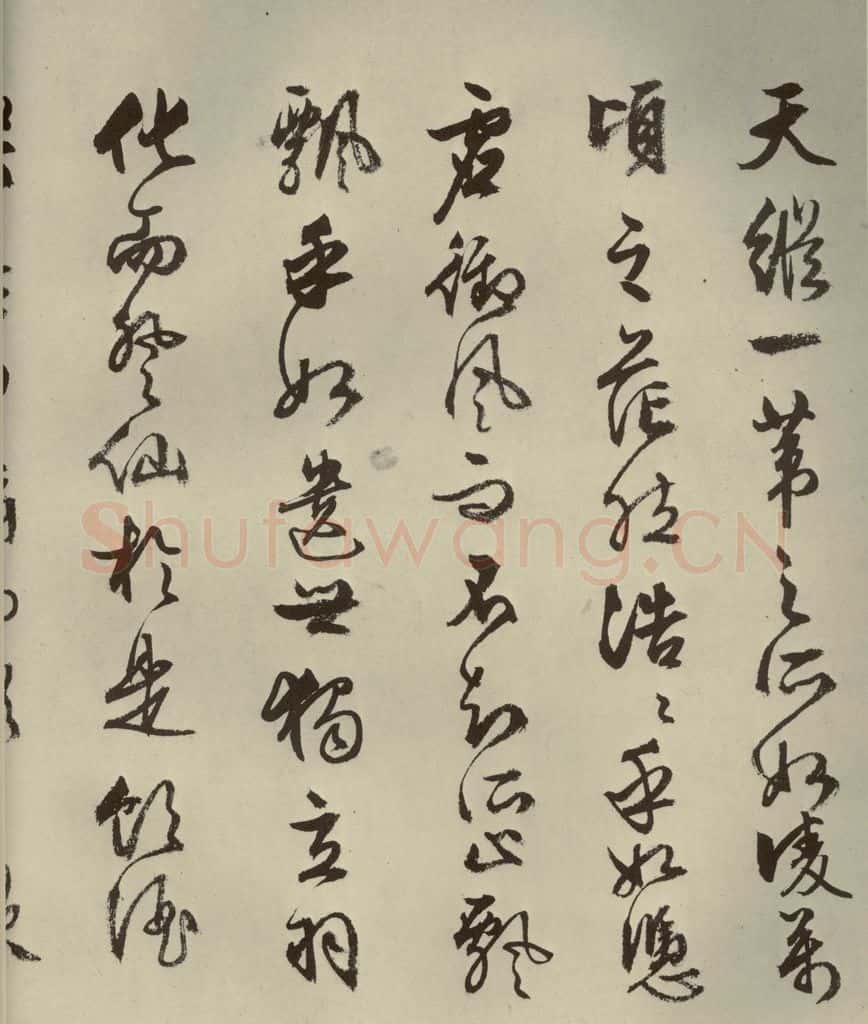 天縱一葦之所如淩萬
頃之茫然浩〻乎如憑
虛御風而不知所止飄
飄乎如遺世獨立羽
化而登仙於是飲酒
Shufawang.CN